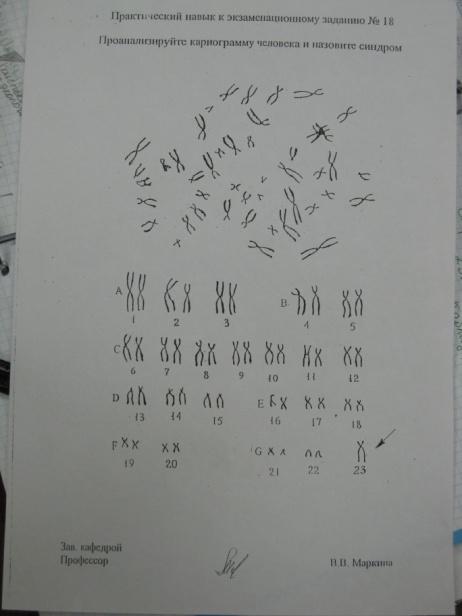 Практический навык к экзаменационному заданию № 18
Проанализируйте кариограмму человека и назовите синдром
A 1 2 3 B 4 5
C 6 7 8 9 10 11 12
D 13 14 15 E 16 17 18
F 19 20 G 21 22 23
Зав. кафедрой
Профессор В.В. Маркина